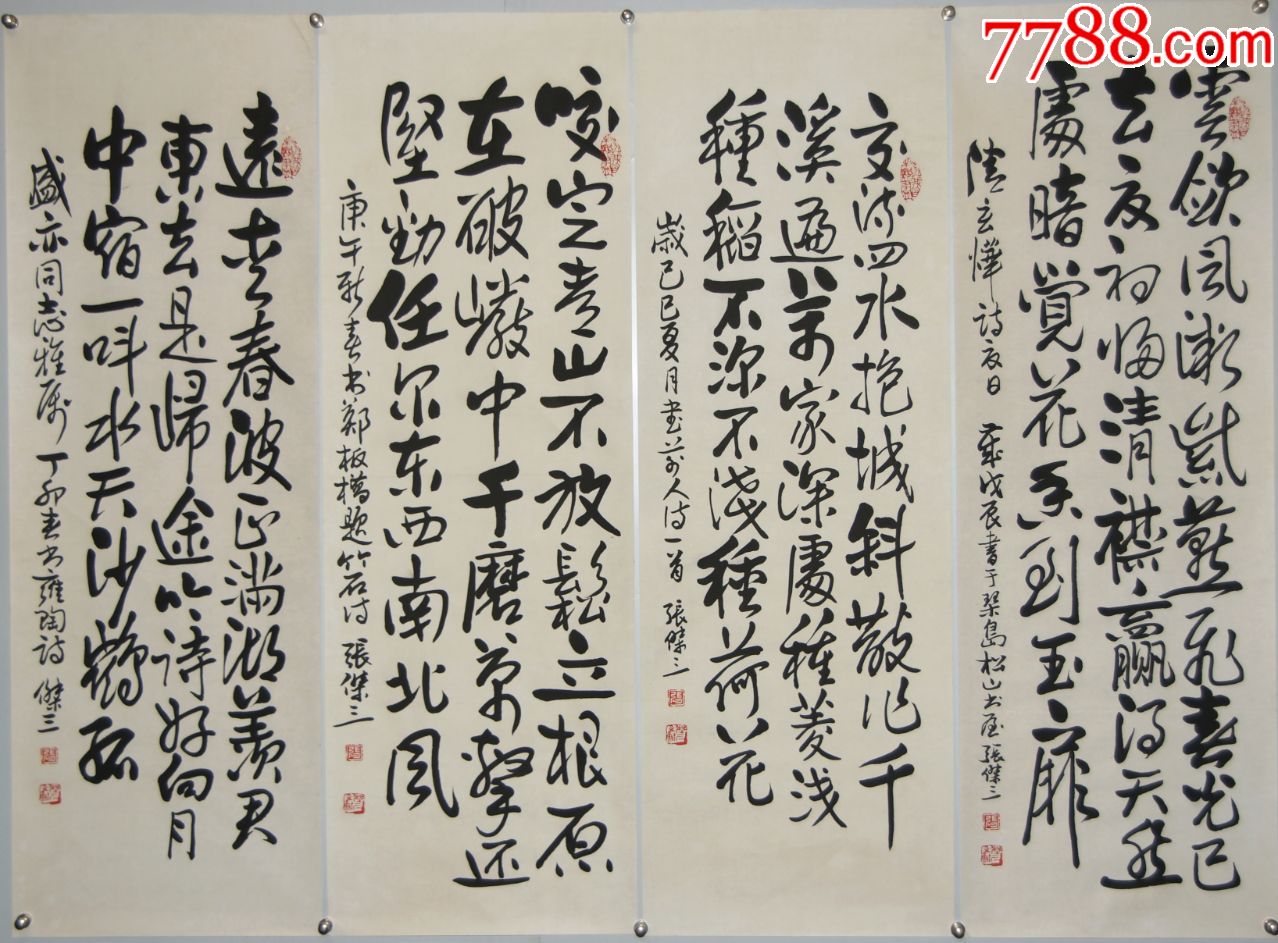 7788.com
雲斂風微紫燕飛春光已
去夏初清襟贏得天然
處暗覺花香到玉扉
清玄燁詩夏日 歲戊辰書于琴島松山書屋張傑三
交流四水抱城斜散作千
溪遍萬家深處種菱浅
種稻不深不淺種荷花
歲己巳夏月書前人詩一首 張傑三
咬定青山不放鬆立根原
在破巖中千磨萬擊还
堅勁任尔东西南北风
庚午新春書鄭板橋題竹石詩 張傑三
遠春波正滿湖羨君
東去是歸途吟詩好向月
中宿一叫水天沙鶴孤
盛亦同志雅屬 丁卯春書雍陶詩 傑三